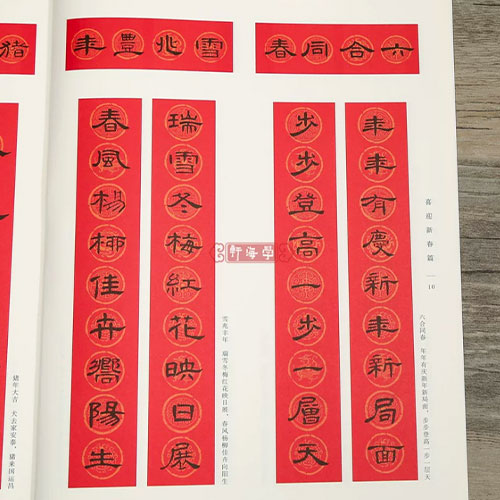 六合同春
年年有慶新年新局面
步步登高一步一層天
雪兆豐年
瑞雪冬梅紅花映日展
春風楊柳佳卉嚮陽生
猪
喜迎新春篇
10
六合同春　年年有庆新年新局面，步步登高一步一层天
雪兆丰年　瑞雪冬梅红花映日展，春风杨柳佳卉向阳生
猪年大吉　犬去家安泰，猪来国运昌
學海軒